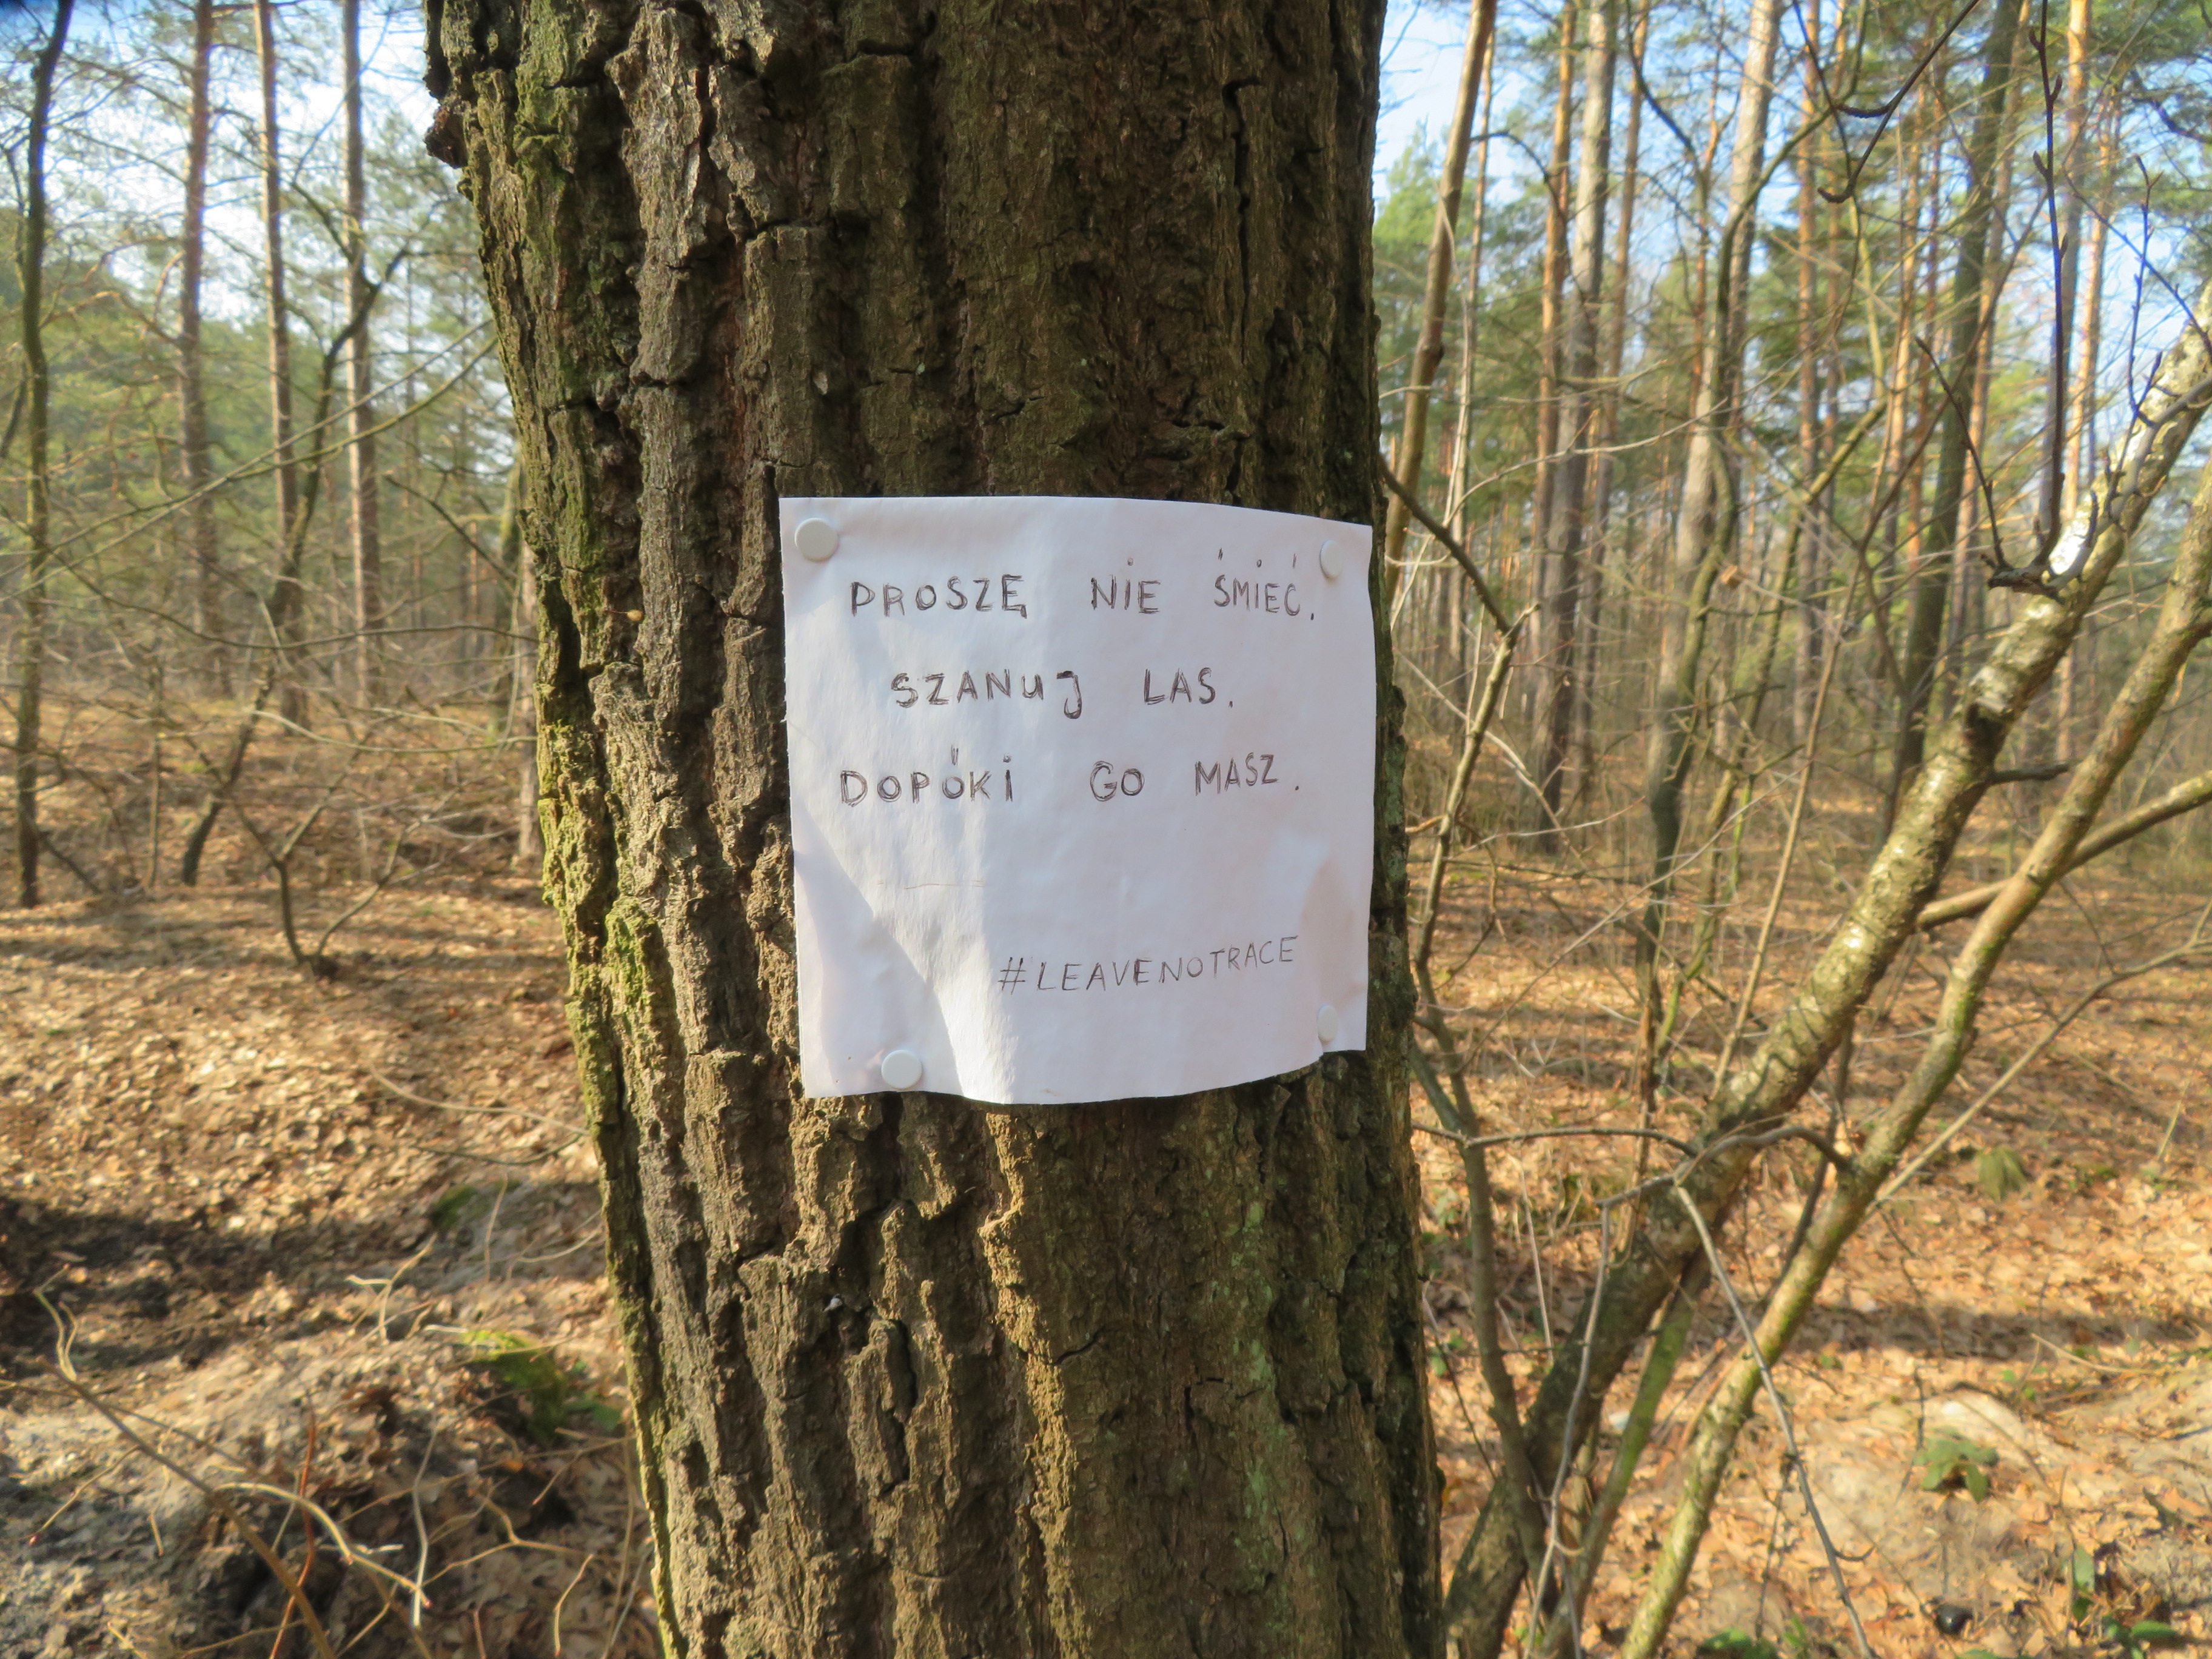 PROSZĘ NiE ŚMiEĆ.
SZANUJ LAS.
DOPÓKi GO MASZ.
#LEAVENOTRACE